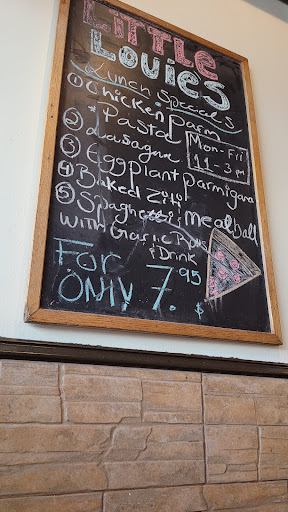 Little
Louies
Lunch Specials
① Chicken Parm
* Pasta
② Lasagna
③ Eggplant Parmigana
④ Baked Ziti
⑤ Spaghetti & Meatball
with Garlic Rolls
& Drink
Mon-Fri
11-3 pm
For
ONLY 7.95 $